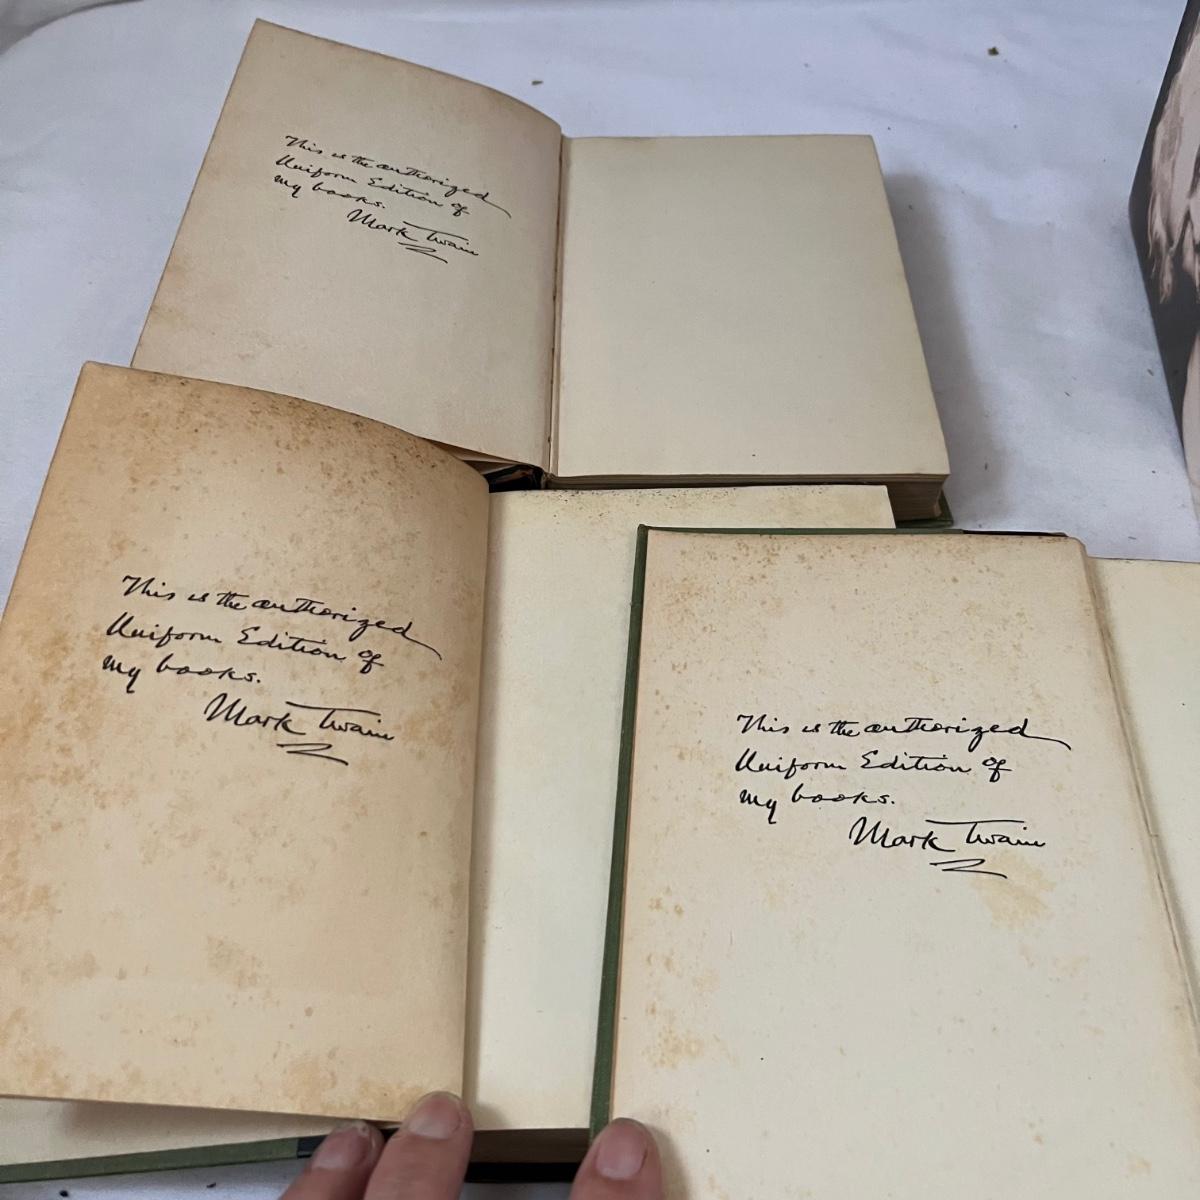 This is the authorized
Uniform Edition of
my books.
Mark Twain
This is the authorized
Uniform Edition of
my books.
Mark Twain
This is the authorized
Uniform Edition of
my books.
Mark Twain